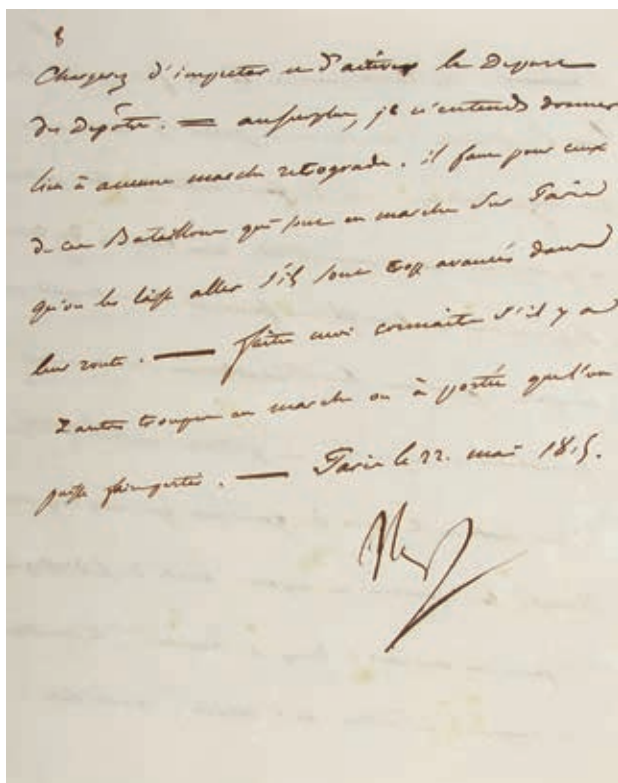 8
Chargerez d'inspecter et d'activer le Depart
des Depôts. = au surplus, je n'entends donner
lieu à aucune marche retograde. il faut pour ceux
de ces Bataillons qui sont en marche sur Paris
qu'on les laisse aller s'ils sont trop avancés dans
leur route. — faites moi connaitre s'il y a
d'autres troupes en marche ou à portée que l'on
puisse faire partir. — Paris le 22. mai 1815.